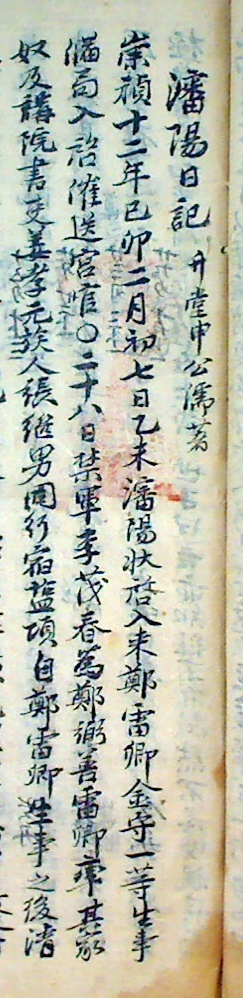 瀋陽日記 升堂申公濡著
崇禎十二年己卯二月初七日乙未瀋陽狀啓入来鄭雷卿金守一等生事
備局入啓催送宮官〇二十八日禁軍李茂春為鄭弼善雷卿率其家
奴及講院書吏姜孝元族人張継男同行宿盐項自鄭雷卿生事之後清